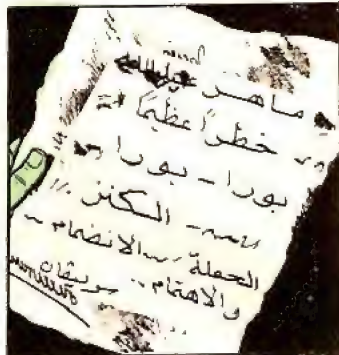 ماهر
خطراً عظيماً
بورا - بورا
- الكنز
الحملة .. الانضمام ..
والاهتمام .. سريعاً